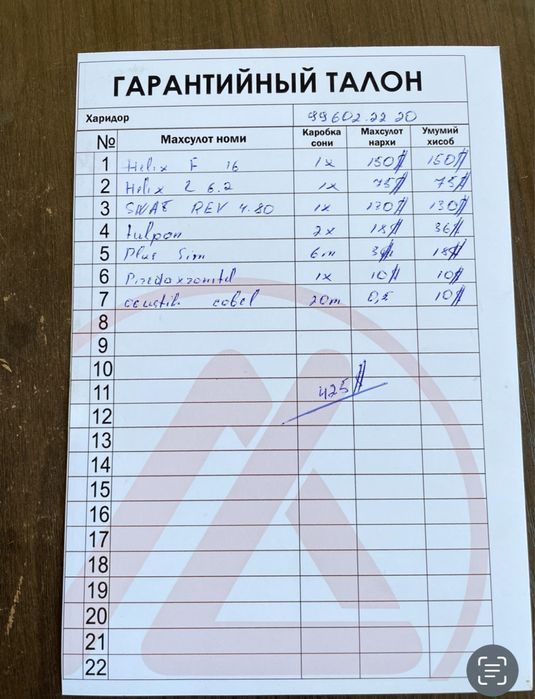 ГАРАНТИЙНЫЙ ТАЛОН
Харидор 99602.22 20
№ Махсулот номи Каробка сони Махсулот нархи Умумий хисоб
1 Helix F 16 1x 150$ 150$
2 Helix 6.2 1x 75$ 75$
3 SWAT REV 4.80 1x 130$ 130$
4 tulpan 2x 18$ 36$
5 Plus Sim 6m 3$ 18$
6 1x 10$ 10$
7 acustik cabel 20m 0,5 10$
8
9
10
11 425$
12
13
14
15
16
17
18
19
20
21
22